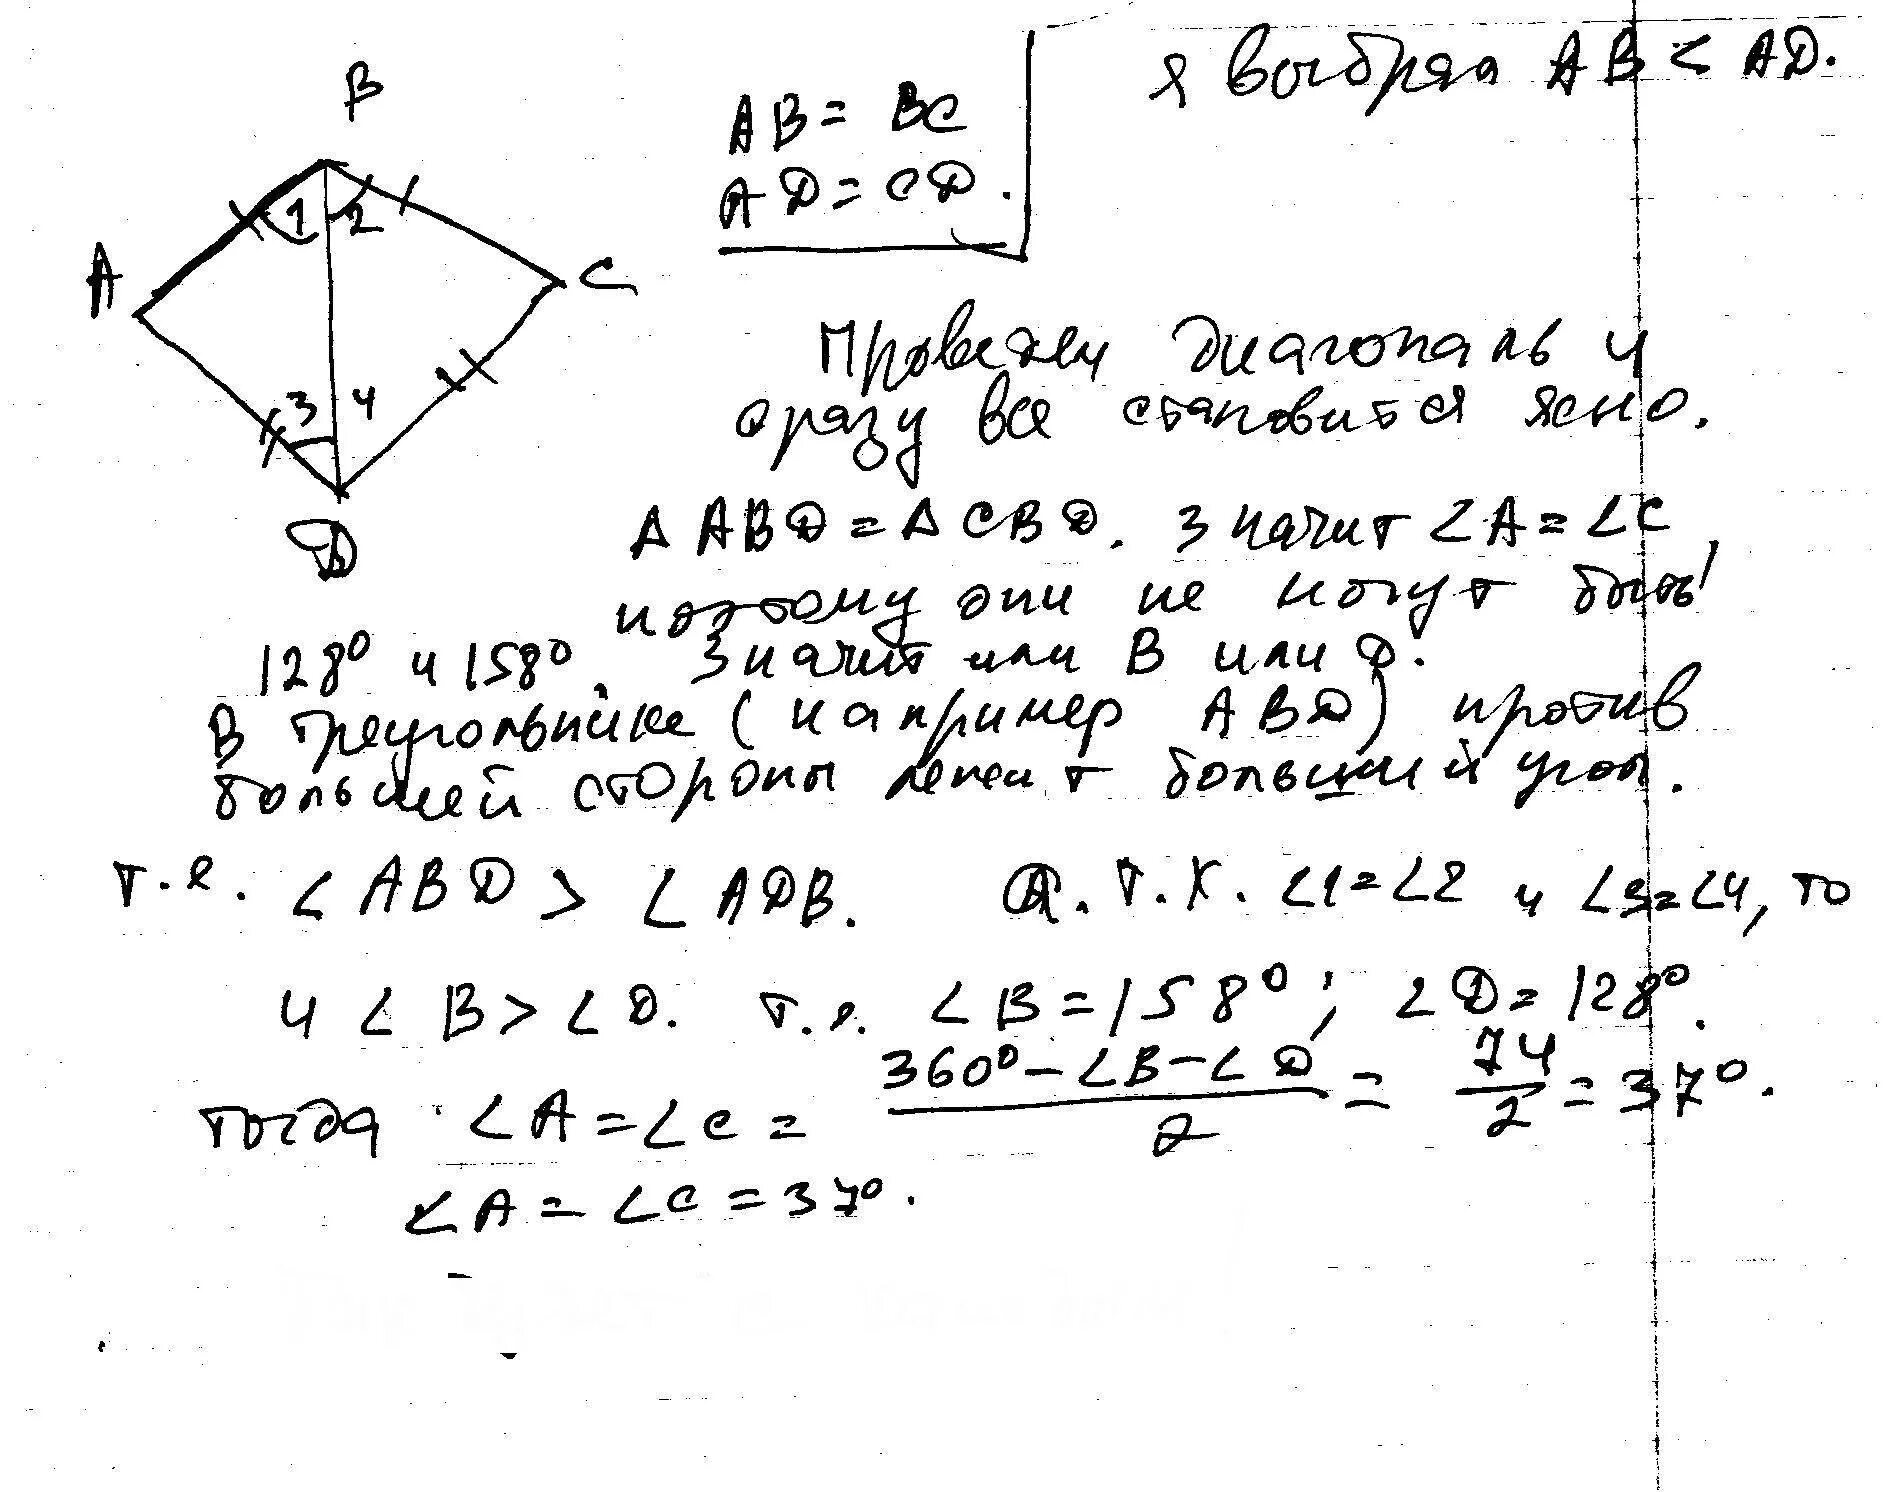 Я выбрал AB < AD.
B
AB = BC
AD = CD.
1 2
A
C
3 4
D
Проведем диагональ и
сразу все становится ясно.
Δ ABD = Δ CBD. Значит ∠A = ∠C,
поэтому они не могут быть
128° и 158°. Значит или B или D.
В треугольнике (например ABD) против
большей стороны лежит больший угол.
т.е. ∠ABD > ∠ADB. А. т.к. ∠1=∠2 и ∠3=∠4, то
и ∠B > ∠D. т.е. ∠B = 158°; ∠D = 128°.
Тогда ∠A = ∠C = (360° - ∠B - ∠D)/2 = 74/2 = 37°.
∠A = ∠C = 37°.